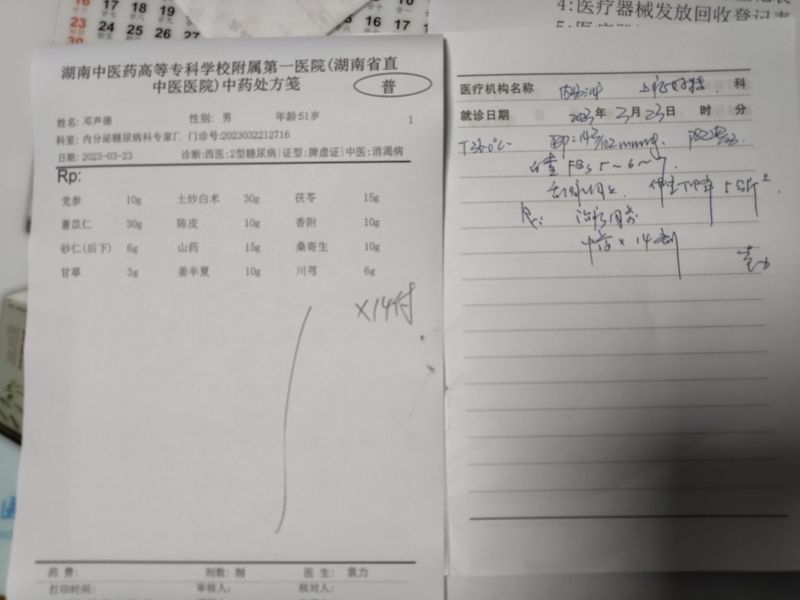 16 17 18 19
23 24 25 26 27
30
16 17
4:医疗器械发放回收登记表
湖南中医药高等专科学校附属第一医院(湖南省直
中医医院)中药处方笺
普
姓名: 邓声德 性别: 男 年龄51岁 1
科室: 内分泌糖尿病科专家厂 门诊号:2023032212716
日期: 2023-03-23 诊断:西医:2型糖尿病|证型:脾虚证|中医:消渴病
Rp:
党参 10g 土炒白术 30g 茯苓 15g
薏苡仁 30g 陈皮 10g 香附 10g
砂仁(后下) 6g 山药 15g 桑寄生 10g
甘草 3g 姜半夏 10g 川芎 6g
×14付
药费: 剂数: 剂 医生: 袁力
打印时间: 审核人: 核对人:
医疗机构名称 科
就诊日期 2023年3月23日 时 分
BP:142/102mmHg.
FBS 5~6~7.
Rx:
中药×14剂